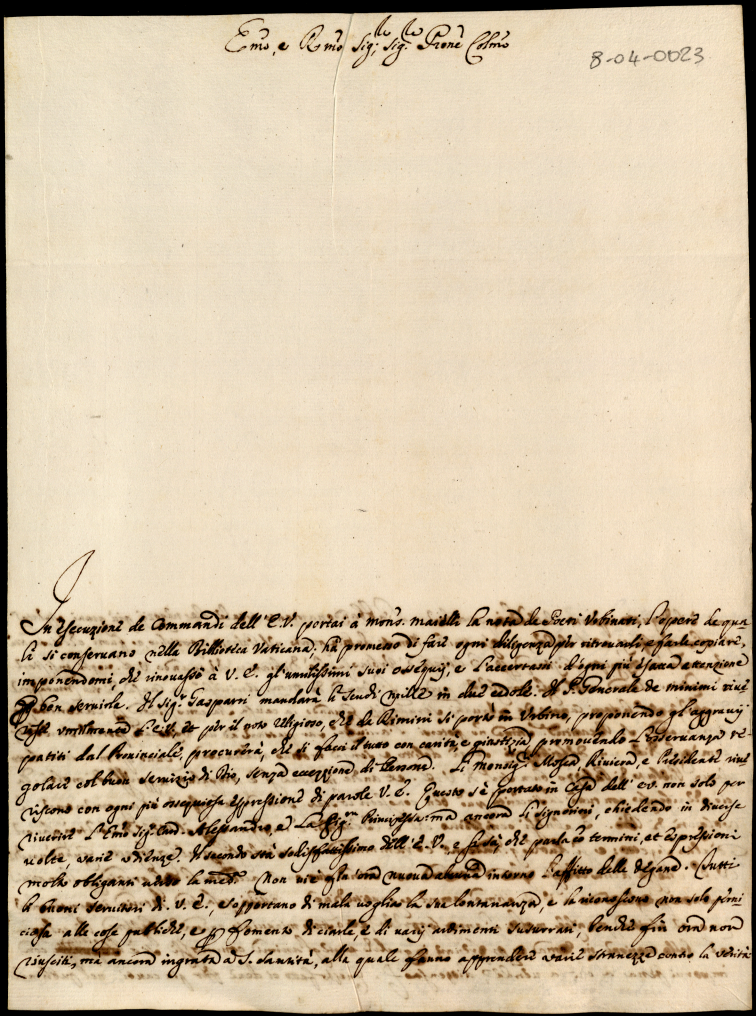 Emo, e Rmo Sig.r Sig.r Prone Colmo
8-04-0023
In esecuzione de Commandi dell'E.V. portai à Mons. Maielli la nota de Poeti Urbinati, l'opere de qua
li si conservano nella Bibliotica Vaticana; hà promesso di fare ogni diligenza per ritrovarli, e farle copiare,
imponendomi, che rinovassi à V.E. gl'umilissimi suoi ossequij, e l'accertassi d'ogni più esatta attenzione
p ben servirla. Il sig. Gasparri mandarà li scudi mille in due cedole. Il P. Generale de minimi rive
l'E.V., et per il noto religioso, che da Rimini si portò in Urbino, proponendo gl'aggravij
patiti dal Provinciale, procurerà, che si facci il tutto con carità, e giustizia promovendo l'osservanza re
golare col buon servizio di Dio, senza eccezzione di Persona. Li Monsig.ri Mosca, Riviera, e Presidente rive
riscono con ogni più ossequiosa espressione di parole V.E. Questo s'è portato in Casa dell'E.V. non solo per
riverire l'Emo sig. Card. Alessandro, e la Principessa: ma ancora li signorini, chiedendo in diverse
volte varie udienze. Il secondo stà sodisfattissimo dell'E.V., e sò, che parla con termini, et espressioni
molto obliganti verso la med.ma Non vi è gia ora nuova alcuna intorno l'affitto delle Degana. Tutti
li buoni servitori di V.E., sopportano di mala voglia la sua lontananza, e la riconoscono non solo perni
ciosa alle cose publiche, e p fomento di ciarle, e di varij susurrati, benche fin ora non
riusciti, ma ancora ingrata a S. Santità, alla quale fanno apprendere varie stranezze contro la verità